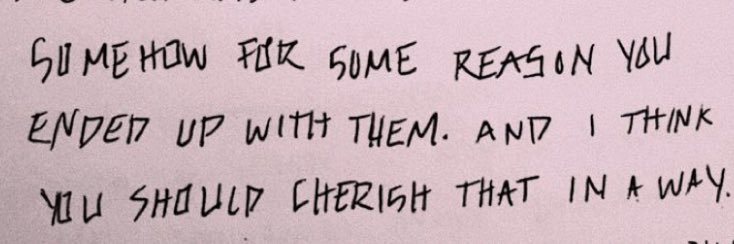 SOMEHOW FOR SOME REASON YOU
ENDED UP WITH THEM. AND I THINK
YOU SHOULD CHERISH THAT IN A WAY.